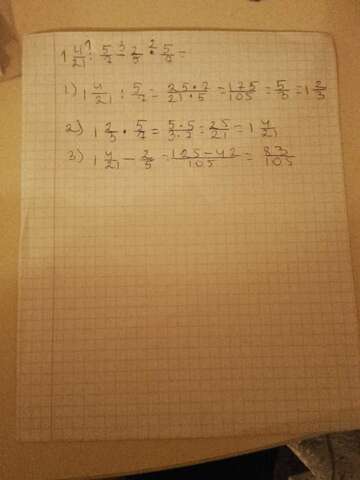 1 4/21 : 5/7 - 2/5 • 5/7 =
1) 1 4/21 : 5/7 = 25•7/21•5 = 175/105 = 5/3 = 1 2/3
2) 1 2/3 • 5/7 = 5•5/3•7 = 25/21 = 1 4/21
3) 1 4/21 - 2/5 = 125-42/105 = 83/105